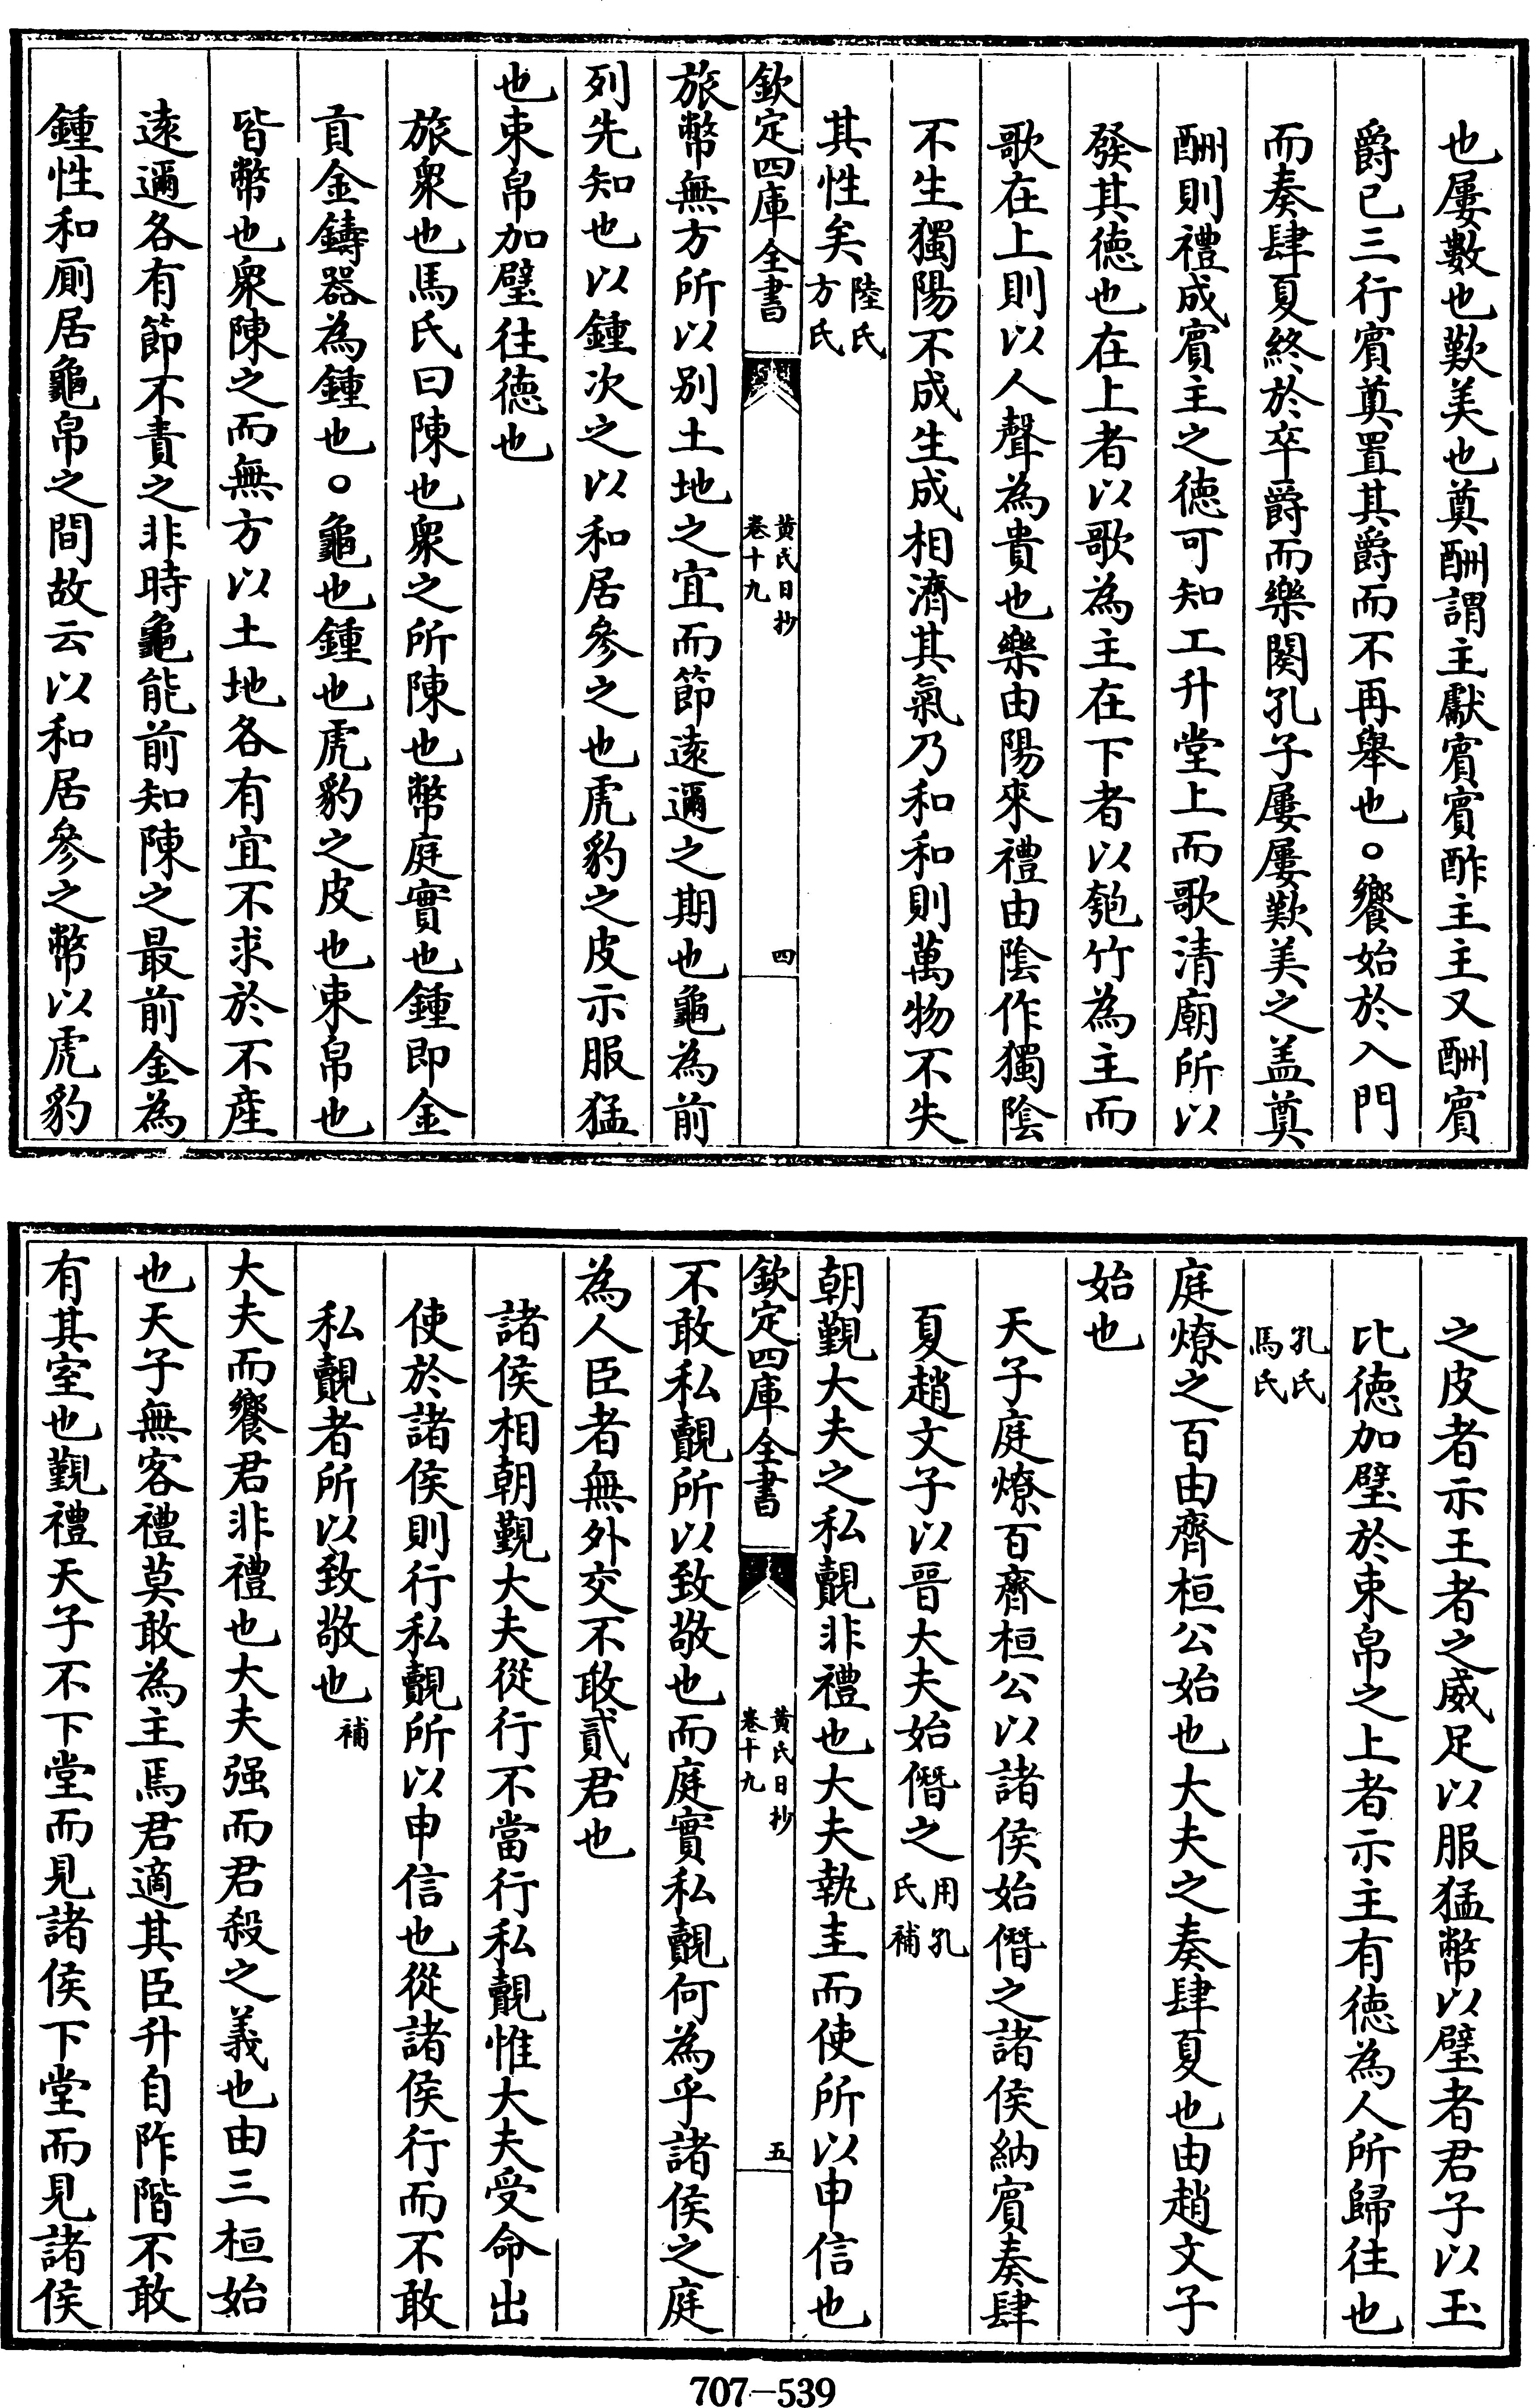 也屢數也歎美也奠酬謂主獻賓賓酢主主又酬賓
爵已三行賓奠置其爵而不再舉也○饗始於入門
而奏肆夏終於卒爵而樂闋孔子屢屢歎美之盖奠
酬則禮成賓主之徳可知工升堂上而歌清廟所以
發其徳也在上者以歌為主在下者以匏竹為主而
歌在上則以人聲為貴也樂由陽來禮由陰作獨陰
不生獨陽不成生成相濟其氣乃和和則萬物不失
其性矣陸氏方氏
欽定四庫全書 黄氏日抄卷十九 四
旅幣無方所以别土地之宜而節逺邇之期也龜為前
列先知也以鍾次之以和居參之也虎豹之皮示服猛
也束帛加璧往徳也
旅衆也馬氏曰陳也衆之所陳也幣庭實也鍾即金
貢金鑄器為鍾也○龜也鍾也虎豹之皮也束帛也
皆幣也衆陳之而無方以土地各有宜不求於不産
逺邇各有節不責之非時龜能前知陳之最前金為
鍾性和厠居龜帛之間故云以和居參之幣以虎豹
之皮者示王者之威足以服猛幣以璧者君子以玉
比徳加璧於束帛之上者示主有徳為人所歸往也
孔氏馬氏
庭燎之百由齊桓公始也大夫之奏肆夏也由趙文子
始也
天子庭燎百齊桓公以諸侯始僭之諸侯納賓奏肆
夏趙文子以晉大夫始僭之用孔氏補
朝覲大夫之私覿非禮也大夫執圭而使所以申信也
欽定四庫全書 黄氏日抄卷十九 五
不敢私覿所以致敬也而庭實私覿何為乎諸侯之庭
為人臣者無外交不敢貳君也
諸侯相朝覲大夫從行不當行私覿惟大夫受命出
使於諸侯則行私覿所以申信也從諸侯行而不敢
私覿者所以致敬也補
大夫而饗君非禮也大夫强而君殺之義也由三桓始
也天子無客禮莫敢為主焉君適其臣升自阼階不敢
有其室也覲禮天子不下堂而見諸侯下堂而見諸侯
707—539